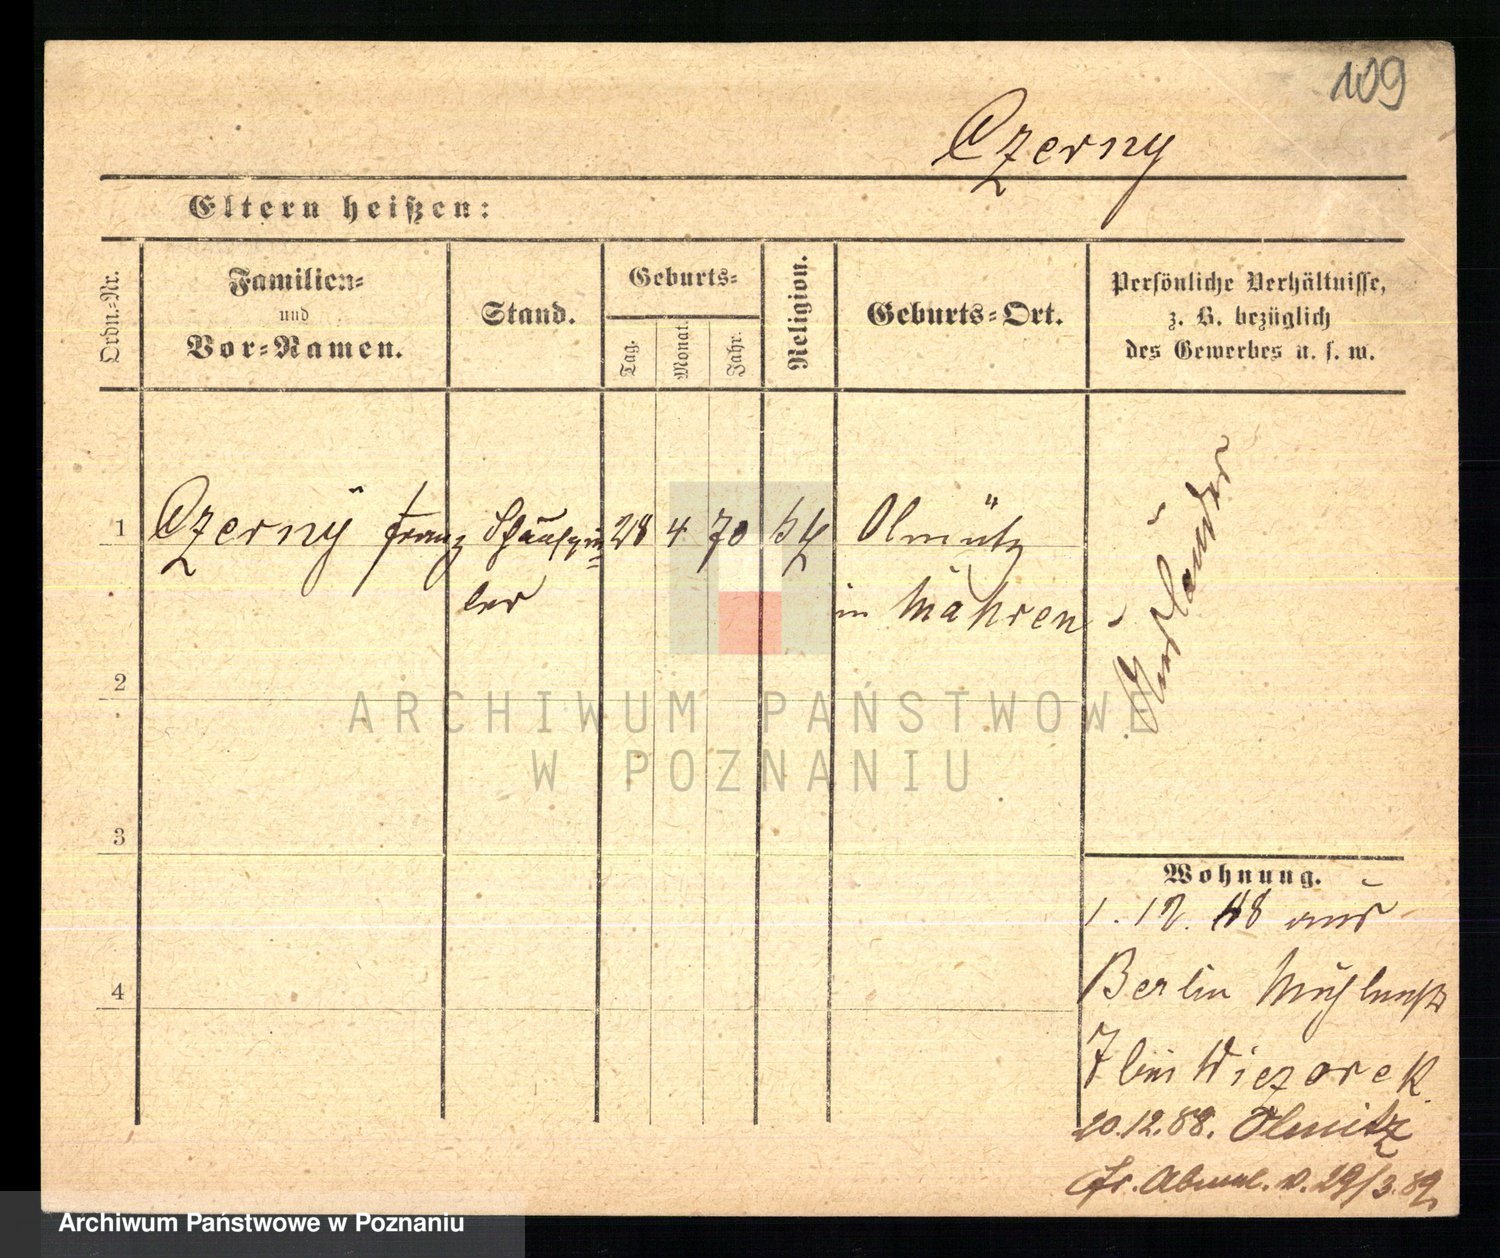 109
Czerny
Eltern heißen:
Ordn.-Nr.
Familien-
und
Vor-Namen.
Stand.
Geburts-
Tag.
Monat.
Jahr.
Religion.
Geburts-Ort.
Persönliche Verhältnisse,
z. B. bezüglich
des Gewerbes u. s. w.
1
Czerny Franz
Schauspie=
ler
28 4 70
Olmütz
in Mähren
Ausländer
2
3
4
Wohnung.
1. 12. 88 aus
Berlin Mühlenstr
7 bei Wiezorek
20.12.88. Olmütz
fr. Abmel. v. 29/3.89.
ARCHIWUM PAŃSTWOWE
W POZNANIU
Archiwum Państwowe w Poznaniu